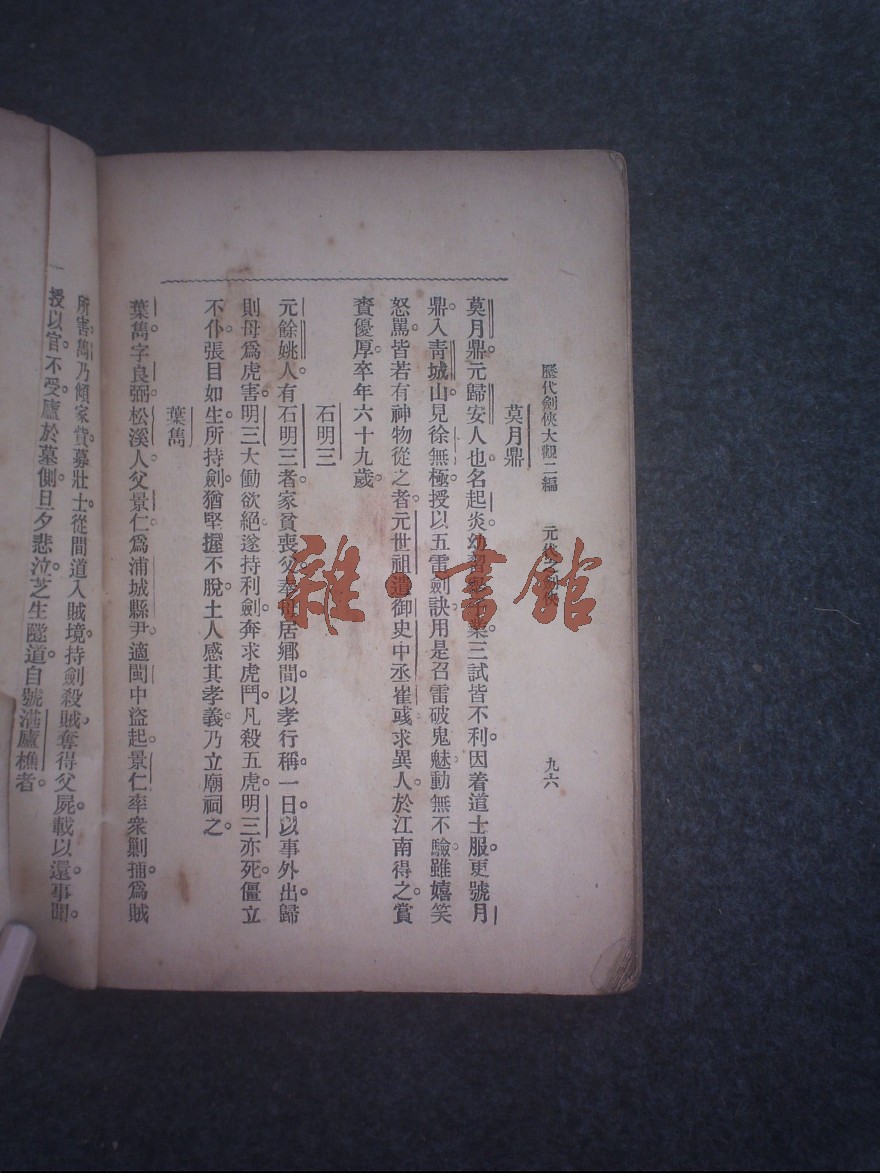 歷代劍俠大觀二編 元代之劍俠 九六
莫月鼎
莫月鼎。元歸安人也。名起炎。幼習舉子業。三試皆不利。因着道士服。更號月
鼎。入青城山。見徐無極。授以五雷劍訣。用是召雷破鬼魅。動無不驗。雖嬉笑
怒罵。皆若有神物從之者。元世祖遣御史中丞崔彧求異人於江南得之。賞
賚優厚。卒年六十九歲。
石明三
元餘姚人有石明三者。家貧喪父。奉母居鄉間。以孝行稱。一日以事外出。歸
則母爲虎害。明三大慟欲絕。遂持利劍奔求虎鬥。凡殺五虎。明三亦死。僵立
不仆。張目如生。所持劍猶堅握不脫。土人感其孝義。乃立廟祠之。
葉雋
葉雋。字良弼。松溪人。父景仁爲浦城縣尹。適閩中盜起。景仁率衆剿捕。爲賊
所害。雋乃傾家貲。募壯士。從間道入賊境。持劍殺賊。奪得父屍。載以還。事聞。
授以官。不受。廬於墓側。旦夕悲泣。芝生隧道。自號湛廬樵者。
雜·書館